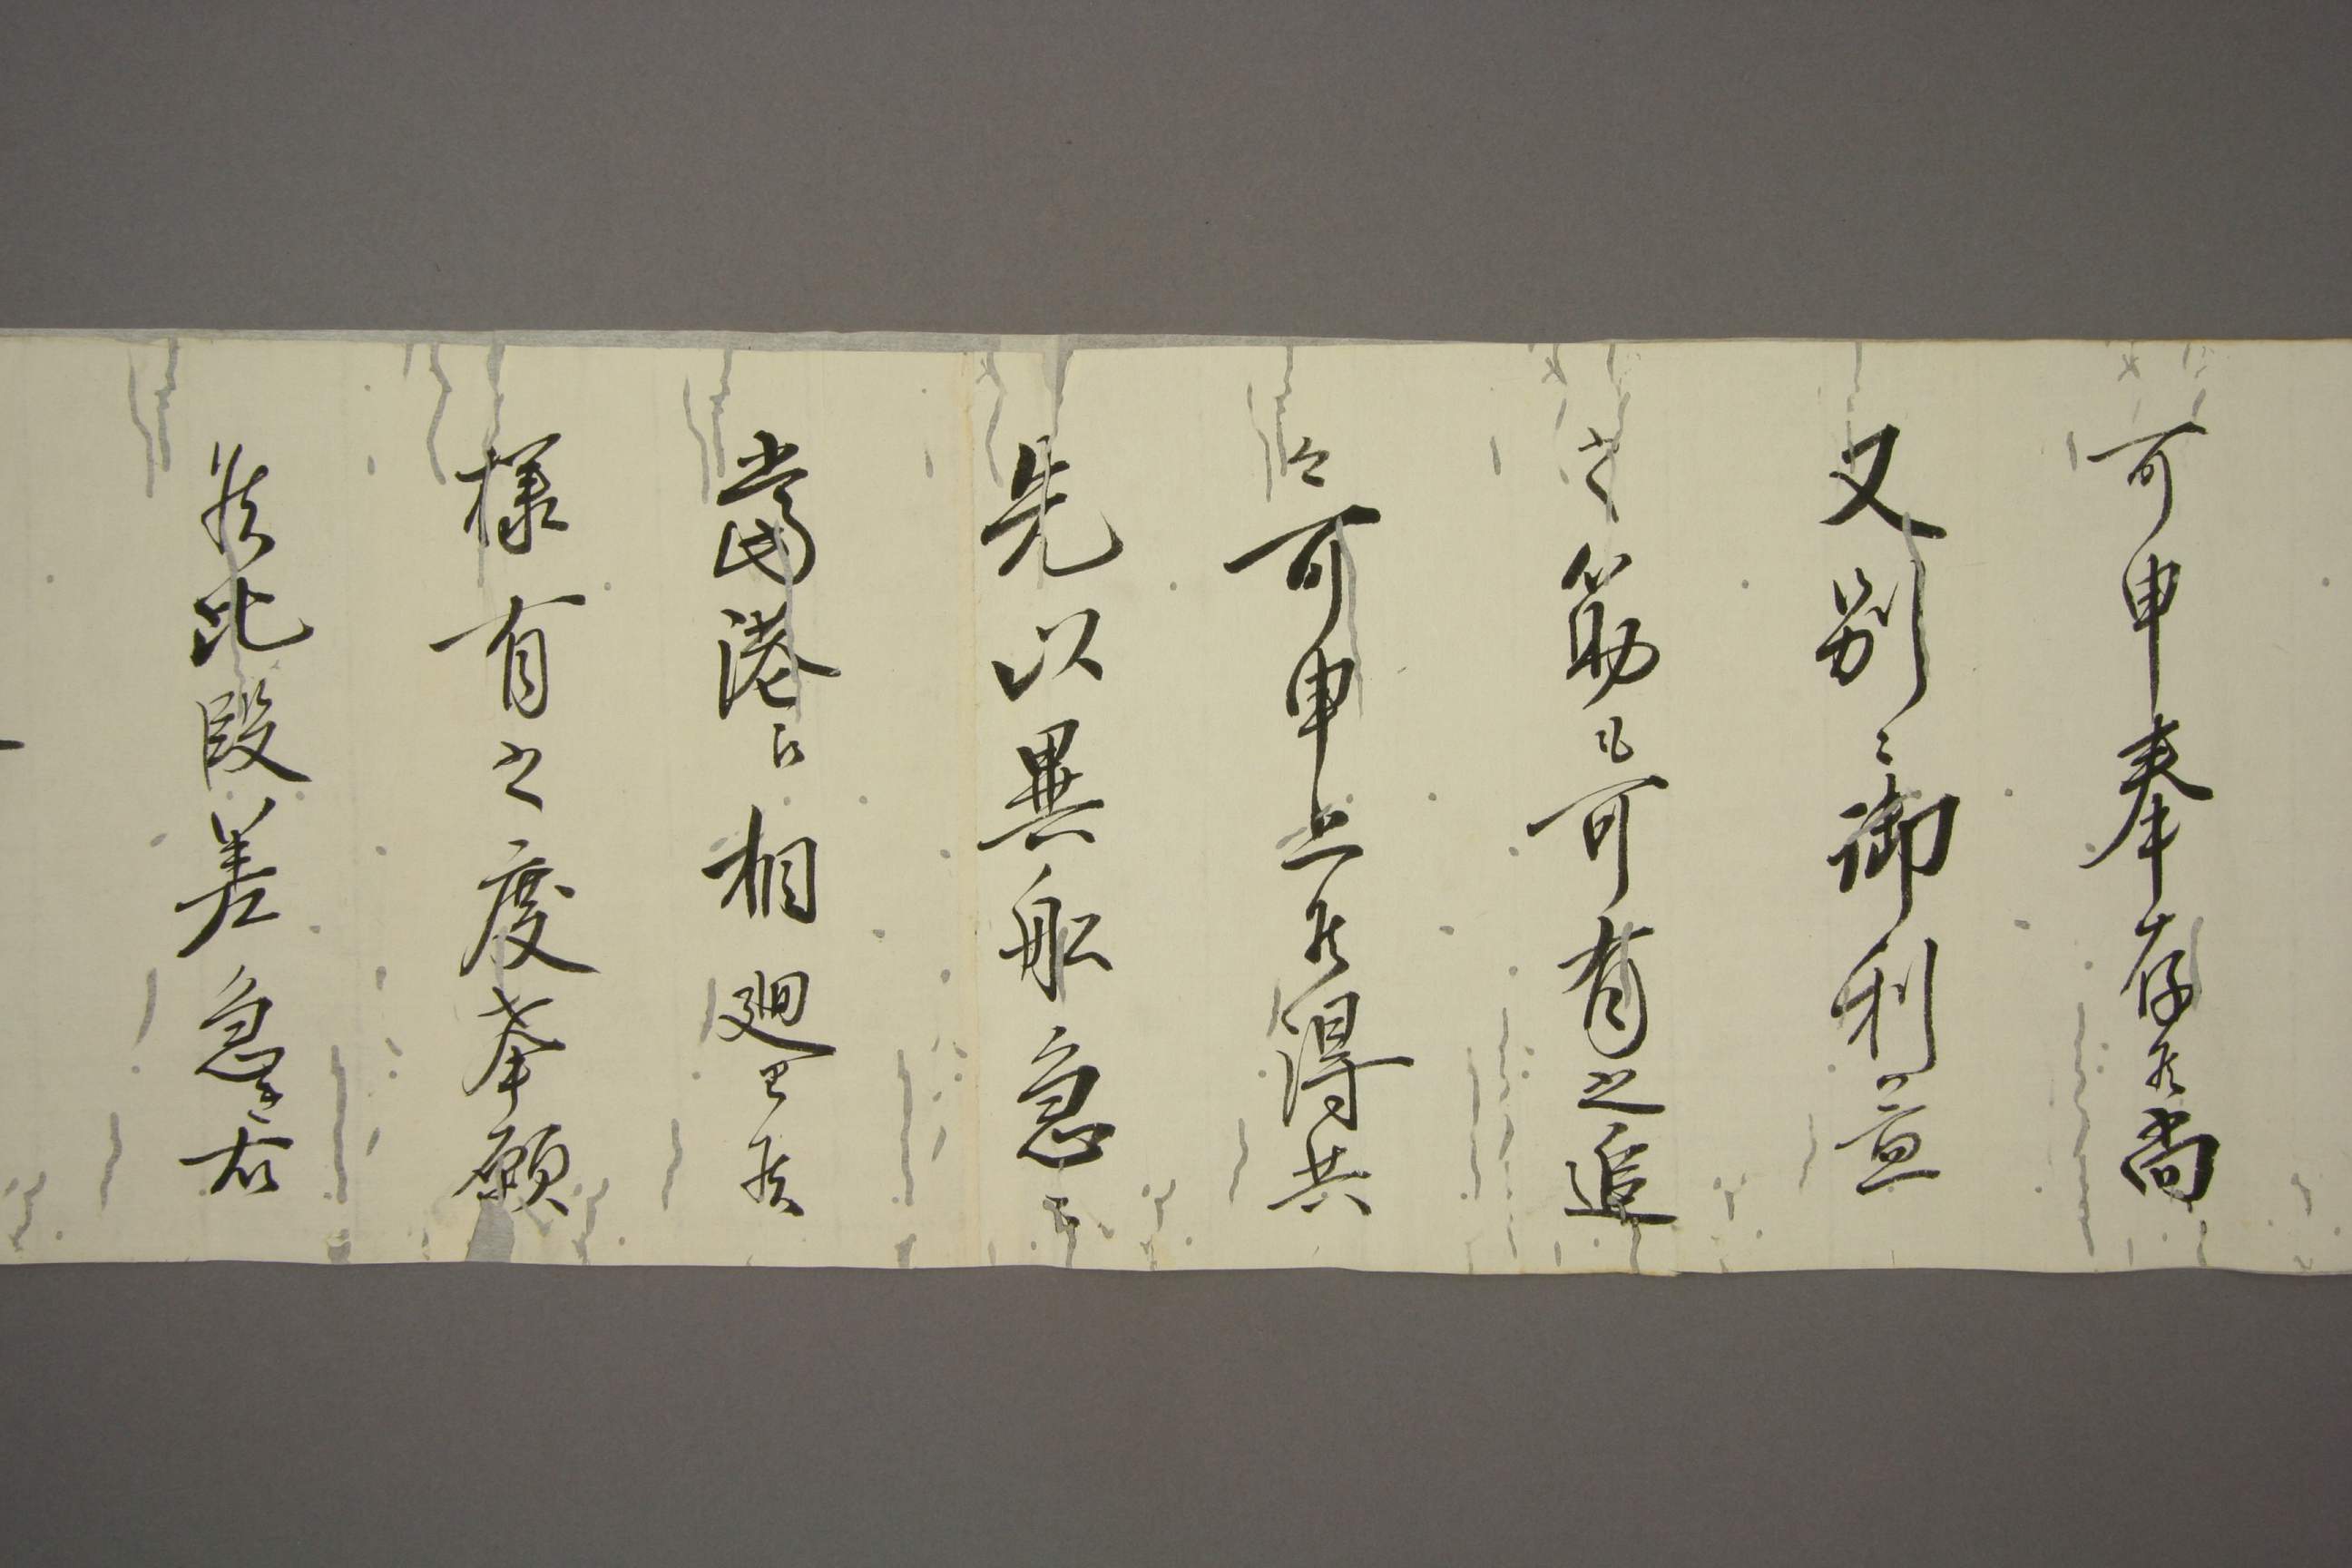 可申奉存候尚
又別ニ御利益
之筋も可有之追
々可申上候得共
先以異船急ニ
當港江相廻し候
様有之度奉願
候此段差急き右